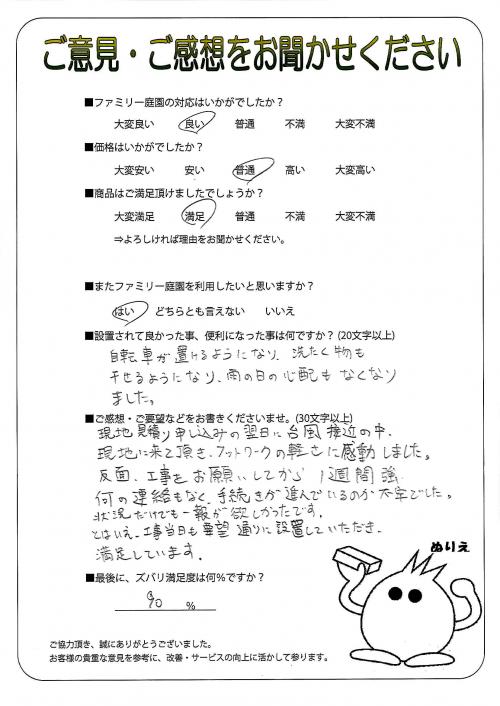 ご意見・ご感想をお聞かせください
■ファミリー庭園の対応はいかがでしたか？
大変良い 良い 普通 不満 大変不満
■価格はいかがでしたか？
大変安い 安い 普通 高い 大変高い
■商品はご満足頂けましたでしょうか？
大変満足 満足 普通 不満 大変不満
⇒よろしければ理由をお聞かせください。
■またファミリー庭園を利用したいと思いますか？
はい どちらとも言えない いいえ
■設置されて良かった事、便利になった事は何ですか？(20文字以上)
自転車が置けるようになり、洗たく物も
干せるようになり、雨の日の心配もなくなり
ました。
■ご感想・ご要望などをお書きくださいませ。(30文字以上)
現地見積り申し込みの翌日に台風接近の中、
現地に来て頂き、フットワークの軽さに感動しました。
反面、工事をお願いしてから 1週間強
何の連絡もなく、手続きが進んでいるのか不安でした。
状況だけでも一報が欲しかったです。
とはいえ、工事当日も要望通りに設置していただき、
満足しています。
ぬりえ
■最後に、ズバリ満足度は何％ですか？
90 ％
ご協力頂き、誠にありがとうございました。
お客様の貴重な意見を参考に、改善・サービスの向上に活かして参ります。